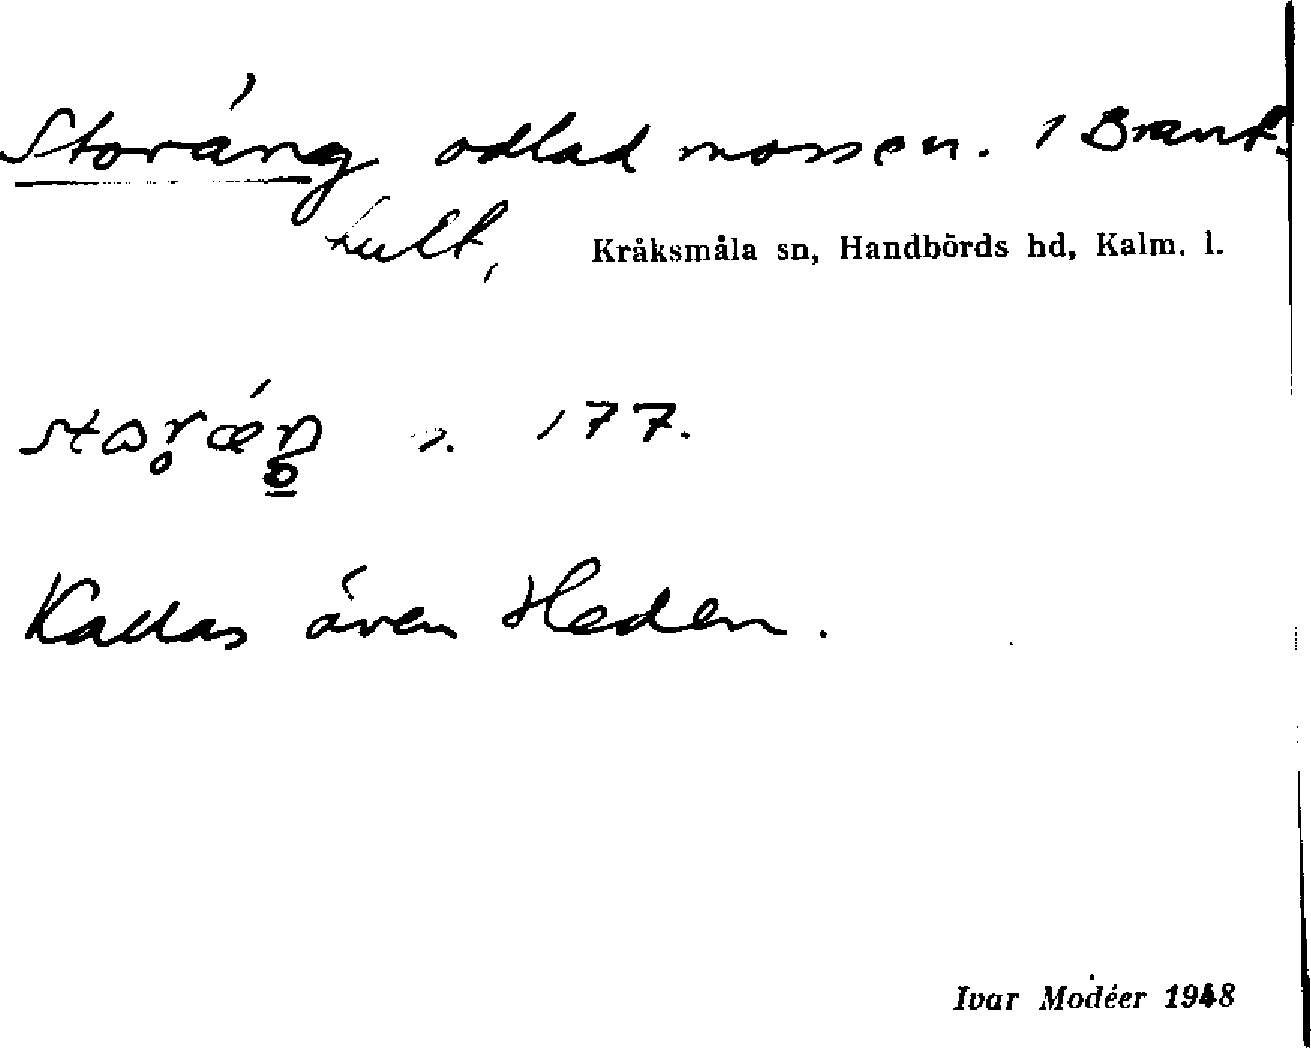 Storäng odlad mossen. 1 Brant-
hult,
Kråksmåla sn, Handbörds hd, Kalm. l.
177.
Kallas även Heden.
Ivar Modéer 1948